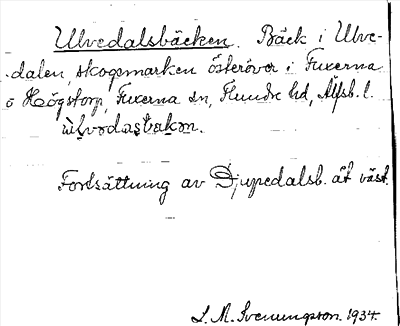 Ulvedalsbäcken. Bäck i Ulve-
dalen, skogsmarken österöver i Fuxerna
o Högstorp, Fuxerna sn, Flundre hd, Älfsb. l.
ùlvədasbakən.
Fortsättning av Djupedalsb. åt väst.
L. M. Svenungsson. 1934.